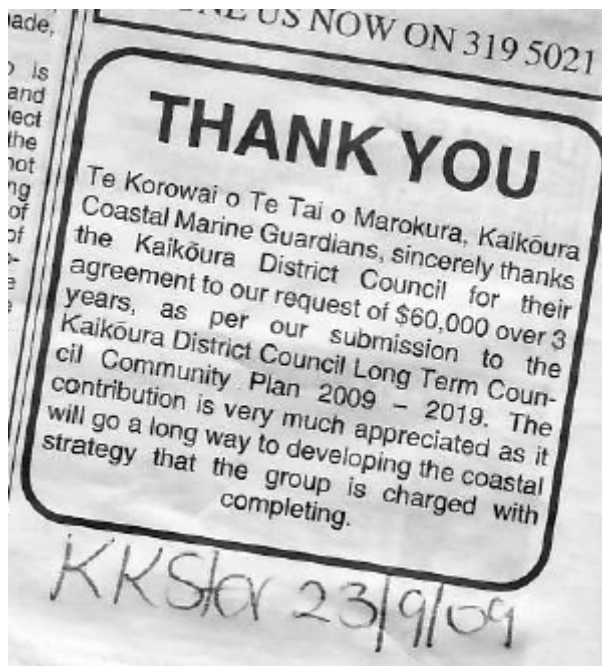 US NOW ON 319 5021
ade,
is
and
ect
the
not
ng
of
of
THANK YOU
Te Korowai o Te Tai o Marokura, Kaikōura
Coastal Marine Guardians, sincerely thanks
the Kaikōura District Council for their
agreement to our request of $60,000 over 3
years, as per our submission to the
Kaikōura District Council Long Term Coun-
cil Community Plan 2009 – 2019. The
contribution is very much appreciated as it
will go a long way to developing the coastal
strategy that the group is charged with
completing.
KKStar 23/9/09